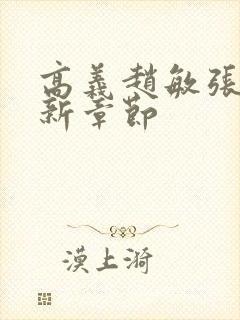 高義趙敏張
新章節
漠上漪